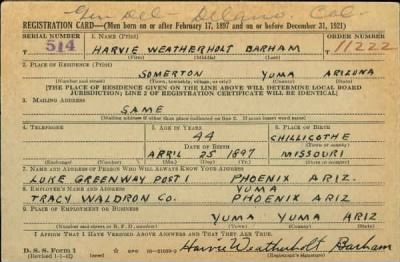 Gen Del Calif
REGISTRATION CARD—(Men born on or after February 17, 1897 and on or before December 31, 1921)
SERIAL NUMBER 1. NAME (Print) ORDER NUMBER
514 HARVIE WEATHERHOLT BARHAM 11222
(First) (Middle) (Last)
2. PLACE OF RESIDENCE (Print)
SOMERTON YUMA ARIZONA
(Number and street) (Town, township, village, or city) (County) (State)
[THE PLACE OF RESIDENCE GIVEN ON THE LINE ABOVE WILL DETERMINE LOCAL BOARD
JURISDICTION; LINE 2 OF REGISTRATION CERTIFICATE WILL BE IDENTICAL]
3. MAILING ADDRESS
SAME
(Mailing address if other than place indicated on line 2. If same insert word same)
4. TELEPHONE 5. AGE IN YEARS 6. PLACE OF BIRTH
44 CHILLICOTHE
DATE OF BIRTH (Town or county)
APRIL 25 1897 MISSOURI
(Exchange) (Number) (Mo.) (Day) (Yr.) (State or country)
7. NAME AND ADDRESS OF PERSON WHO WILL ALWAYS KNOW YOUR ADDRESS
LUKE GREENWAY POST 1 PHOENIX ARIZ.
8. EMPLOYER'S NAME AND ADDRESS YUMA
TRACY WALDRON CO. PHOENIX ARIZ
9. PLACE OF EMPLOYMENT OR BUSINESS
YUMA YUMA ARIZ
(Number and street or R. F. D. number) (Town) (County) (State)
I AFFIRM THAT I HAVE VERIFIED ABOVE ANSWERS AND THAT THEY ARE TRUE.
D. S. S. Form 1
(Revised 1-1-42) (over) Harvie Weatherholt Barham
(Registrant's signature)